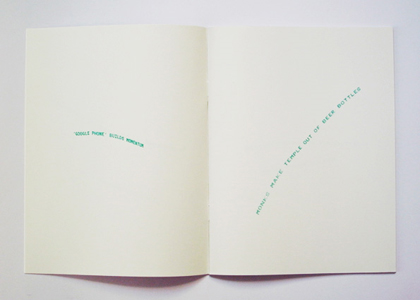 "GOOGLE PHONE" BUILDS MOMENTUM
MONKS MAKE TEMPLE OUT OF BEER BOTTLES